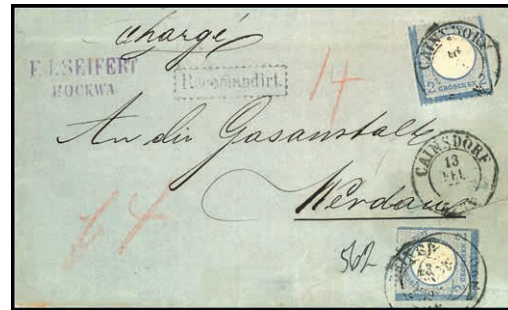 Chargé
F. I. SEIFERT
BOCKWA
Recomandirt.
14
CAINSDORF
2 GROSCHEN 2
An die Gasanstalt
CAINSDORF
13
Werdau
14
562